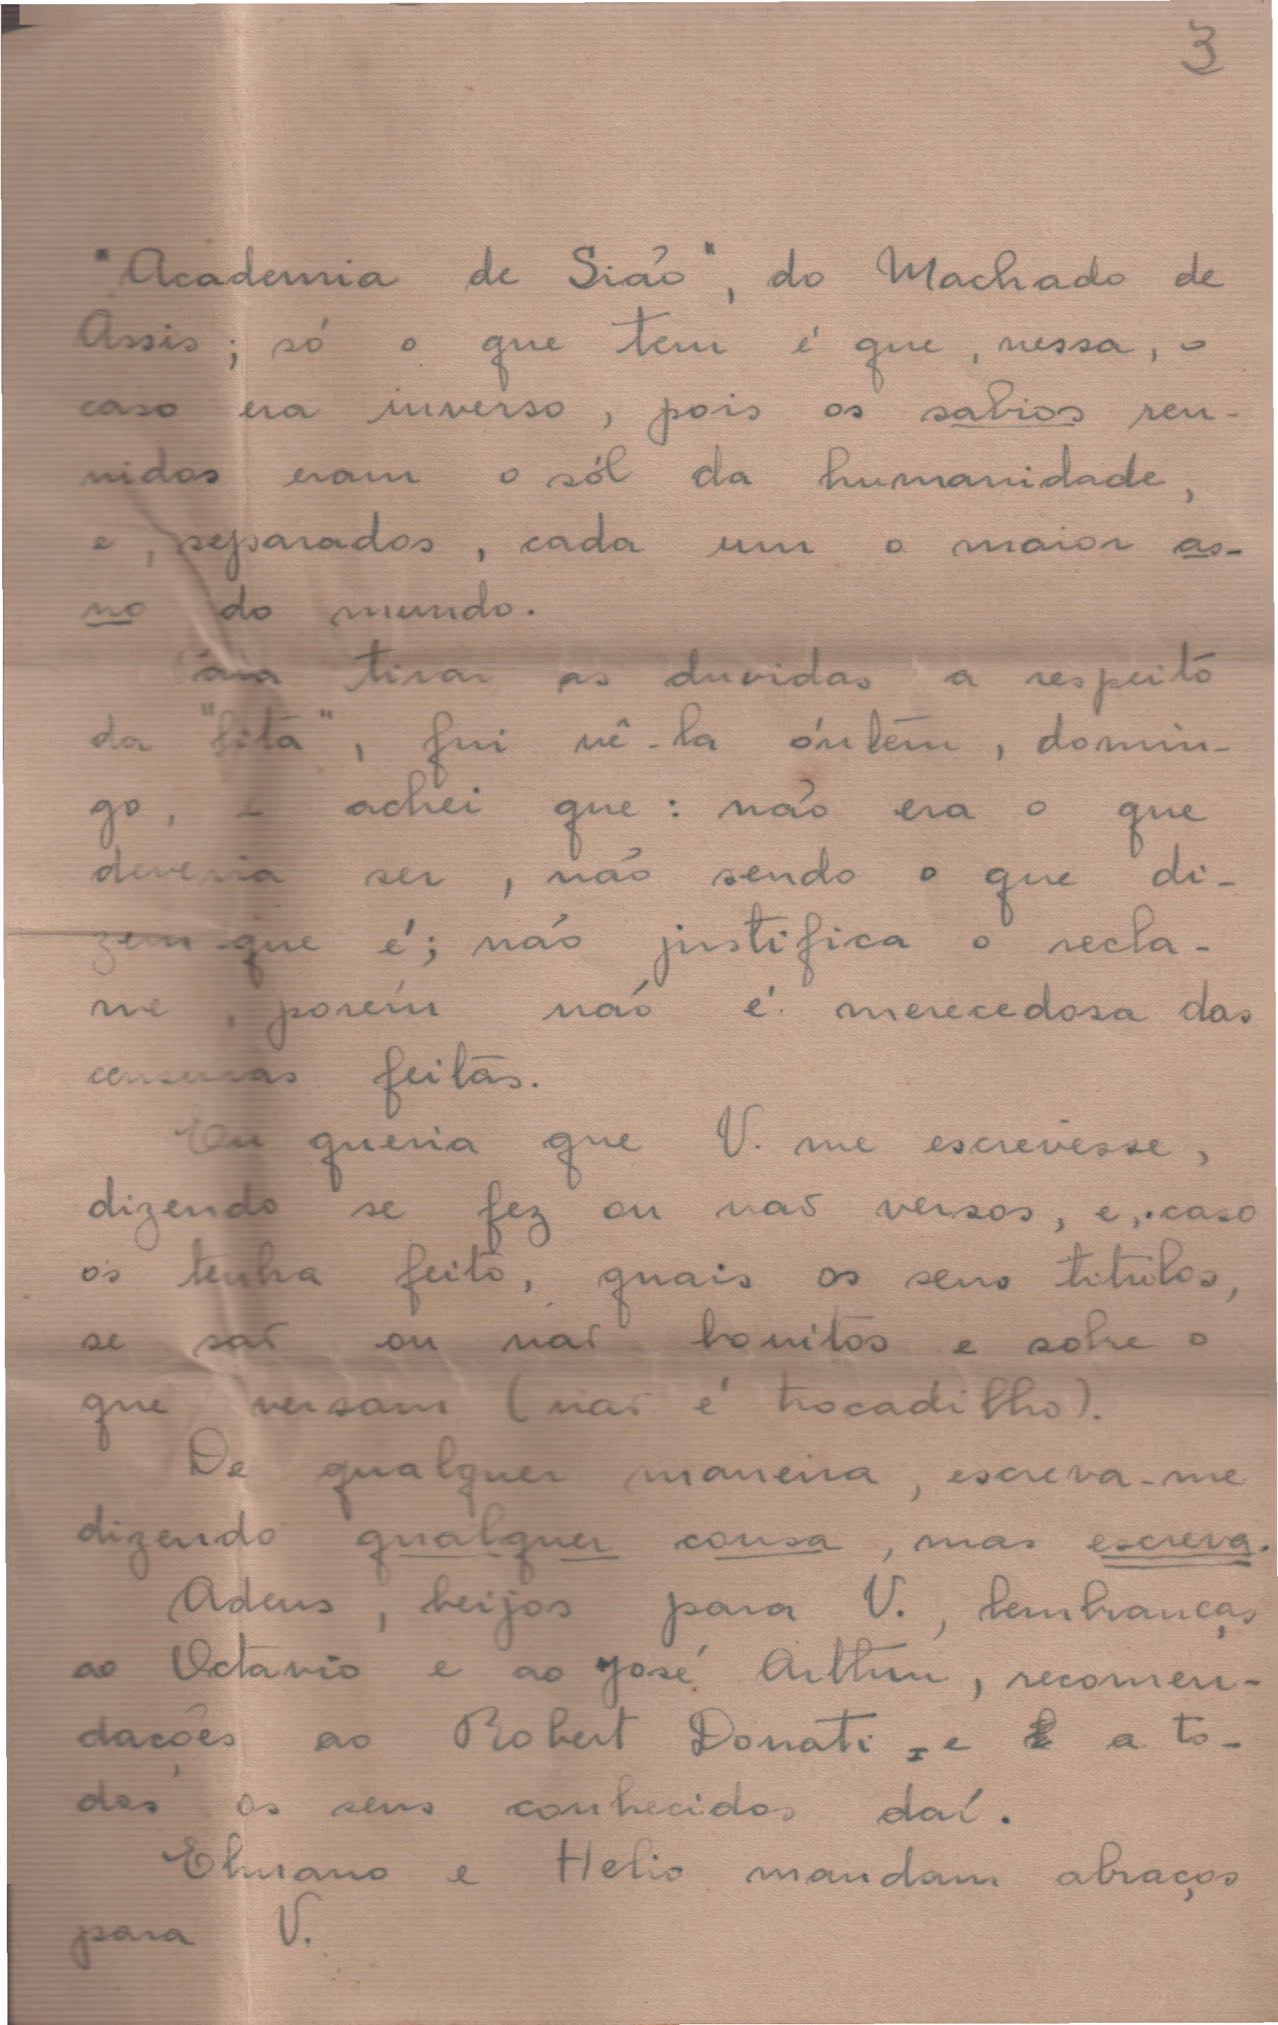 3
"Academia de Sião", do Machado de
Assis; só o que tem é que, nessa, o
caso era inverso, pois os sabios reu-
nidos eram o sól da humanidade,
e, separados, cada um o maior as-
no do mundo.
Para tirar as duvidas a respeito
da "fita", fui vê-la óntem, domin-
go, e achei que: não era o que
deveria ser, não sendo o que di-
zem que é; não justifica o recla-
me, porém não é merecedora das
censuras feitas.
Eu queria que V. me escrevesse,
dizendo se fez ou não versos, e, caso
os tenha feito, quais os seus titulos,
se são ou não bonitos e sobre o
que versam (não é trocadilho).
De qualquer maneira, escreva-me
dizendo qualquer cousa, mas escreva.
Adeus, beijos para V., lembranças
ao Octavio e ao José Arthur, recomen-
dações ao Robert Donati, e a to-
dos os seus conhecidos daí.
Elmano e Helio mandam abraços
para V.